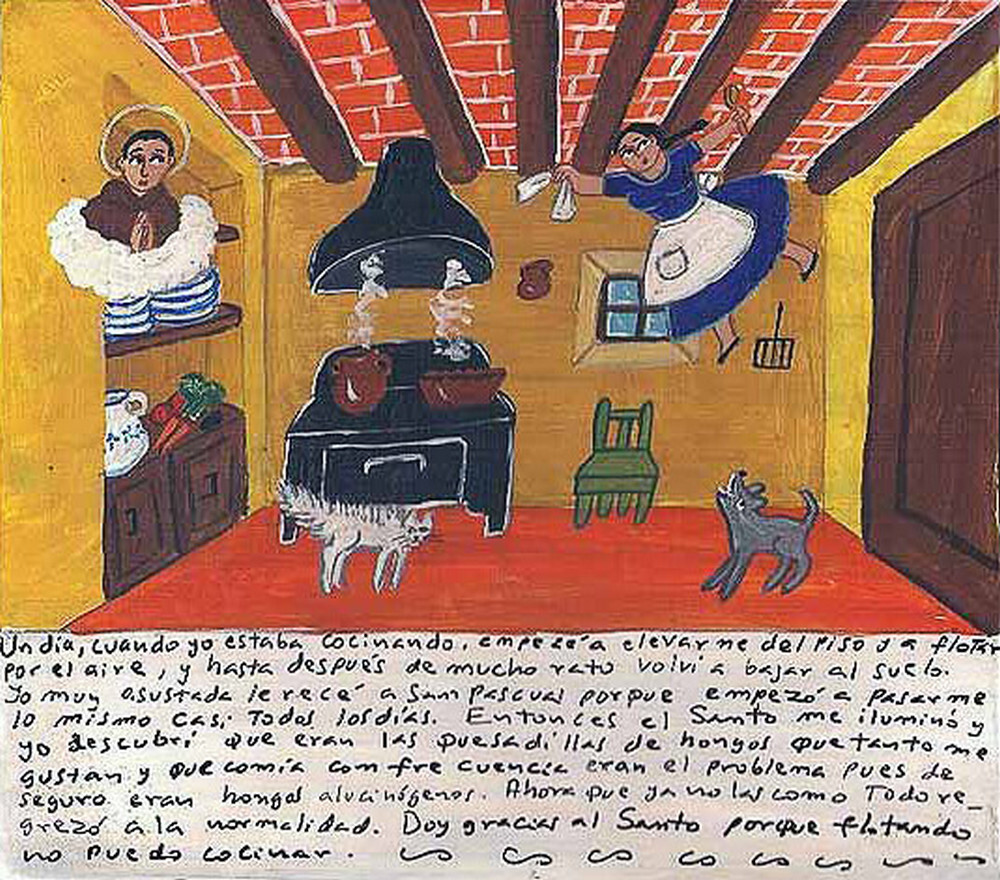 Un día, cuando yo estaba cocinando, empezé a elevarme del piso y a flotar
por el aire, y hasta después de mucho rato volví a bajar al suelo.
Yo muy asustada le recé a San Pascual porque empezó a pasarme
lo mismo casi todos los días. Entonces el Santo me iluminó y
yo descubrí que eran las quesadillas de hongos que tanto me
gustan y que comía con frecuencia eran el problema pues de
seguro eran hongos alucinógenos. Ahora que ya no las como todo re_
grezó a la normalidad. Doy gracias al Santo porque flotando
no puedo cocinar.